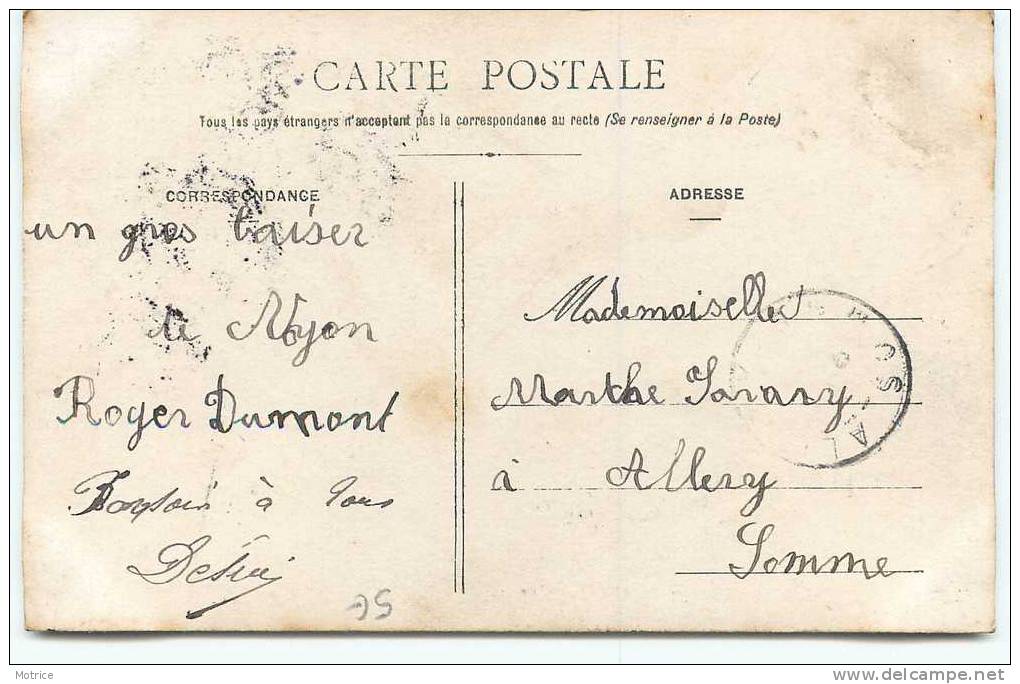 CARTE POSTALE
Tous les pays étrangers n'acceptent pas la correspondance au recto (Se renseigner à la Poste)
CORRESPONDANCE
un gros baiser
de Noyon
Roger Dumont
à tous
ADRESSE
Mademoiselle
Marthe Savary
à Allery
Somme
Motrice
delcampe.net